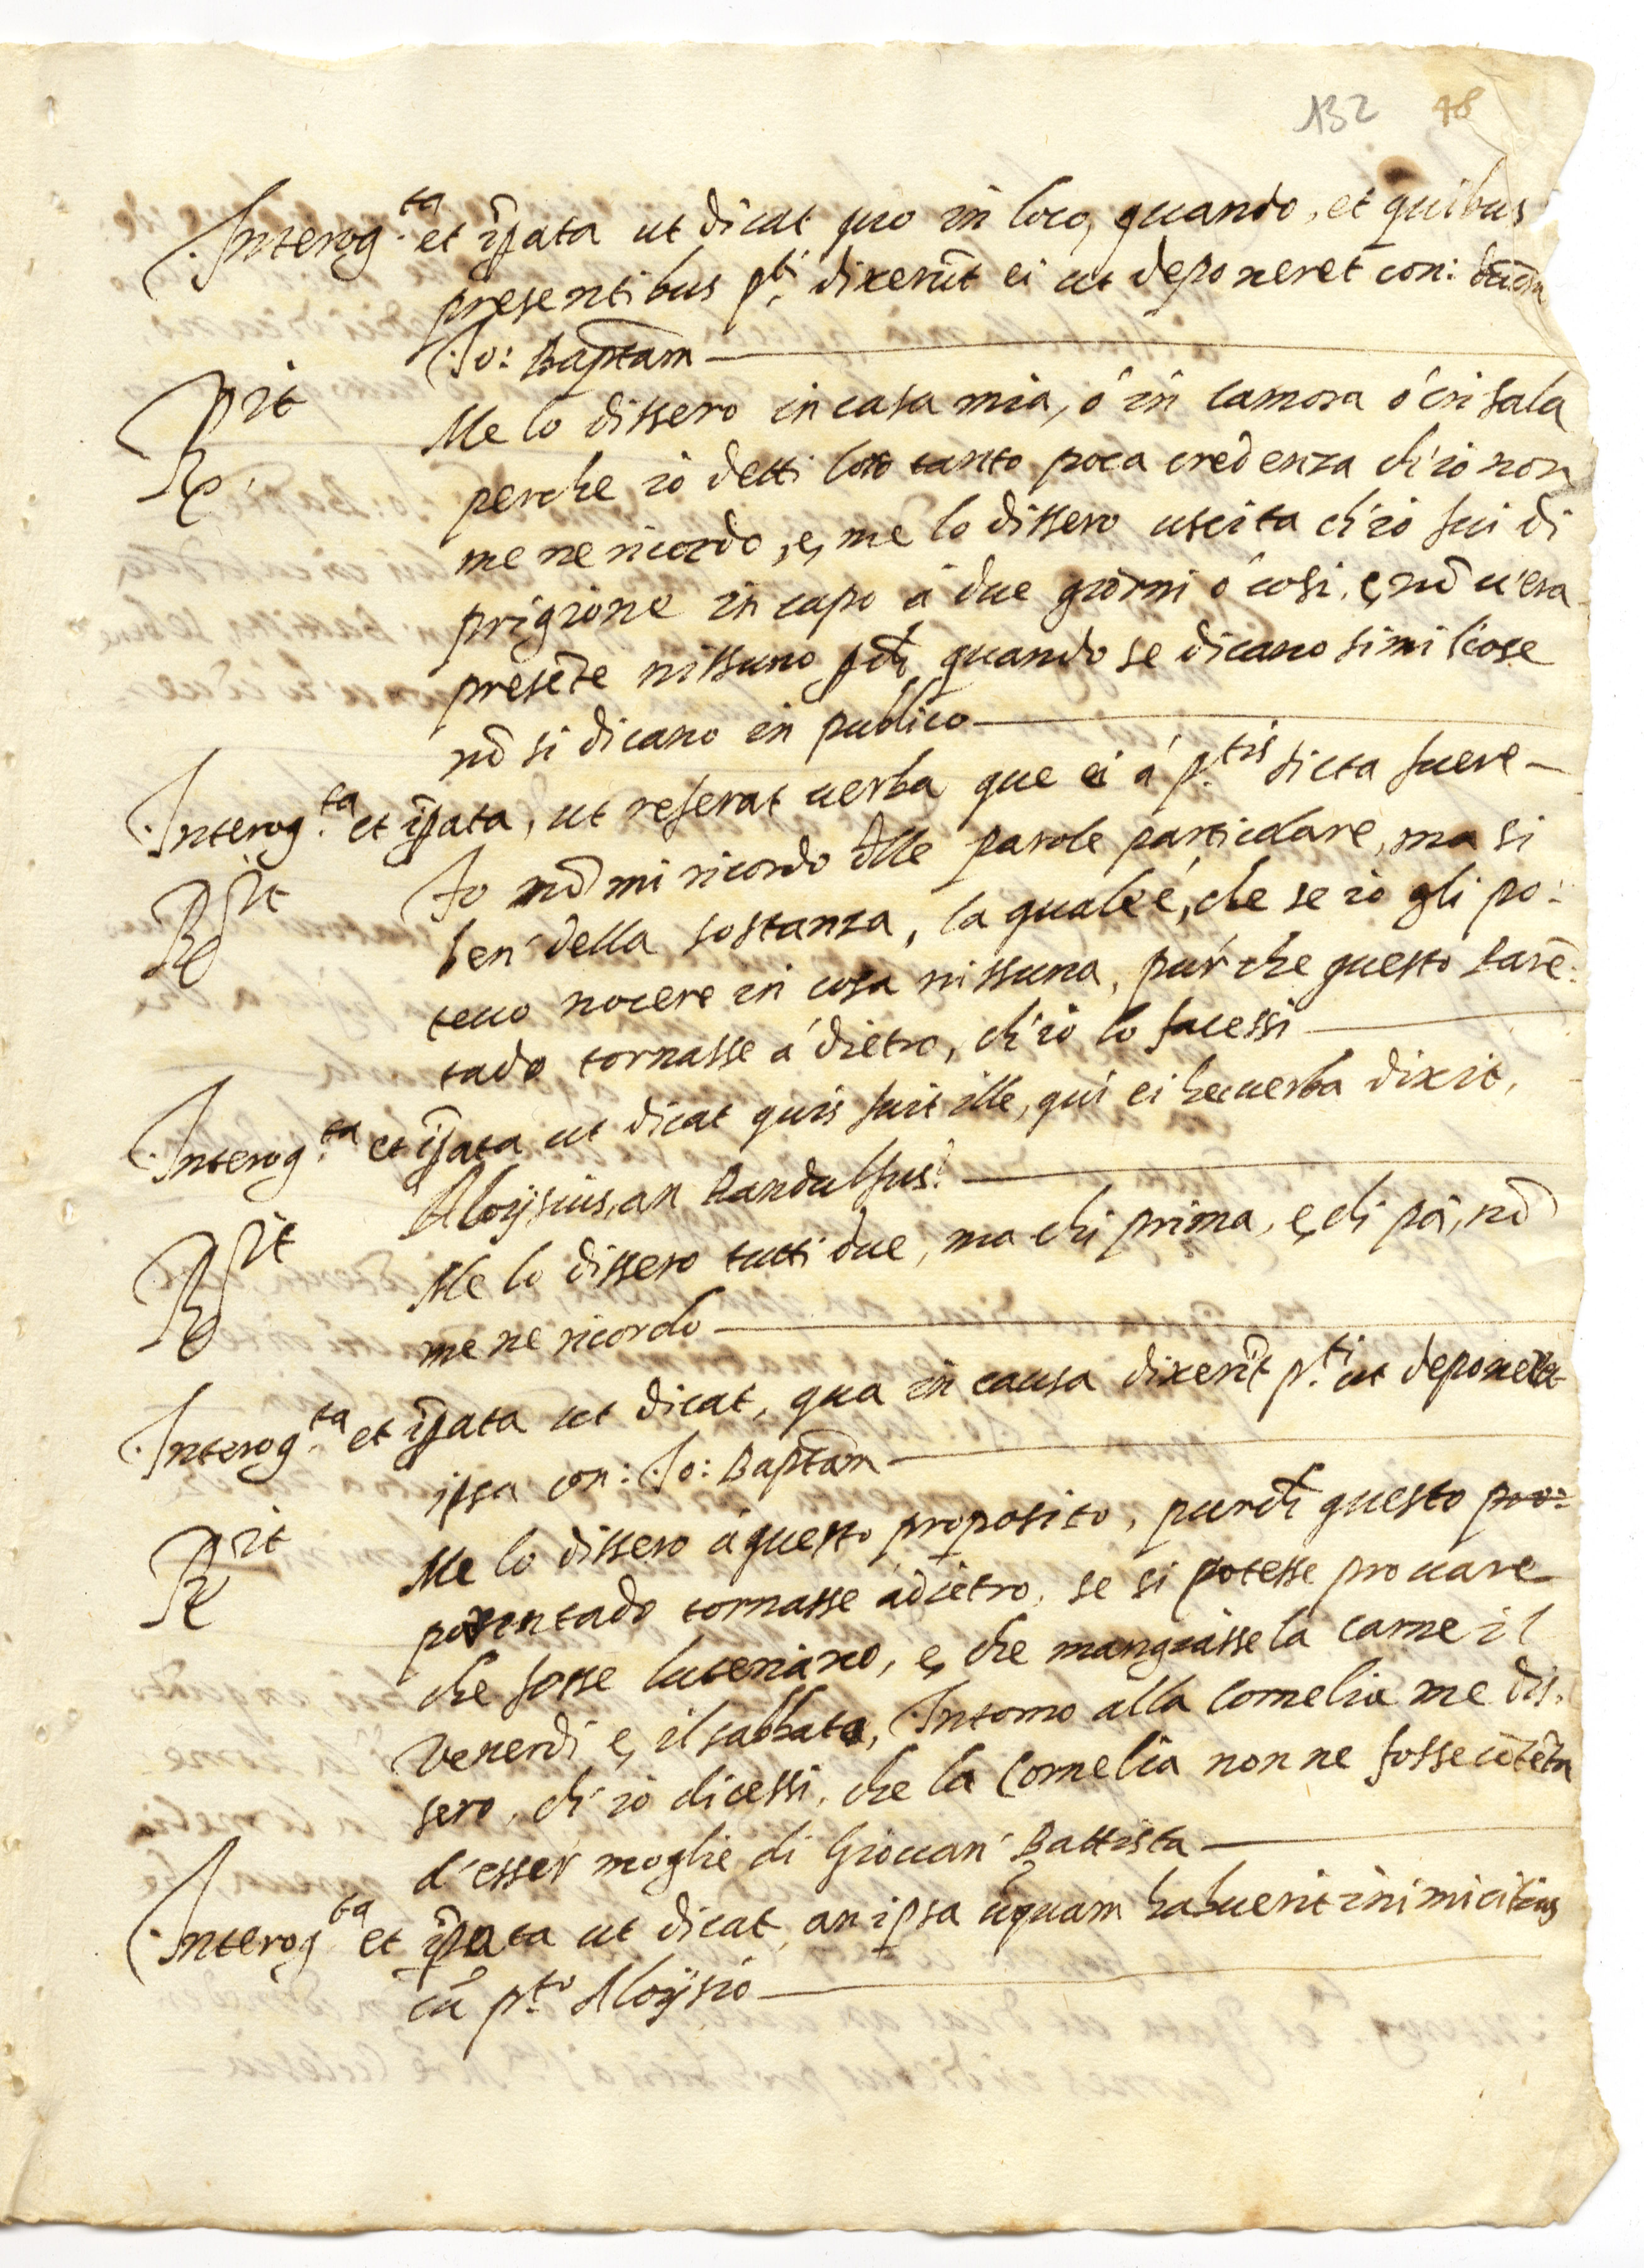 132 48
Interog.ta et ip̃ata ut dicat quo in loco, quando, et quibus
presentibus p.ti dixerũt ei ut deponeret con: dictũ
Jo: Bap̃tam
R.it Me lo dissero in casa mia, ó in camora ó in sala
perche io detti loro tanto poca credenza ch'io non
me ne ricordo, e, me lo dissero uscita ch'io fui di
prigione in capo á due giorni ó cosi, e, nõ u'era
presẽte nissuno p̃ch quando se dicano simil'cose
nõ si dicano in publico
Interog.ta et ip̃ata, ut referat uerba que ei á p.tis dicta fuere
R.it Io nõ mi ricordo d̃lle parole particolare, ma si
ben' della sostanza, la quale é, che se io gli po:
teuo nocere in cosa nissuna, pur'che questo parẽ:
tado tornasse á dietro, ch'io lo facessi
Interog.ta et ip̃ata ut dicat quis fuit ille, qui ei hec uerba dixit,
Aloysius, an Pandulfus?
R.it Me lo dissero tutti due, ma chi prima, e, chi poi, nõ
me ne ricordo
Interog.ta et ip̃ata ut dicat, qua in causa dixerĩt p.ti ut deponeret
ipsa con: Jo: Bap̃tam
R.it Me lo dissero á questo proposito, purch̃ questo pro:
parentado tornasse ádietro, se si potesse prouare
che fosse luteriano, e, che mangiasse la carne il
Venerdi e, il sabbato, Intorno alla Cornelia me dis:
sero, ch'io dicessi, che la Cornelia non ne fosse cõtẽta
d'esser' moglie di Giouan' Battista
Interog.ta et ip̃ata ut dicat, an ipsa ũquam habuerit inimicitias
cũ p.to Aloysio